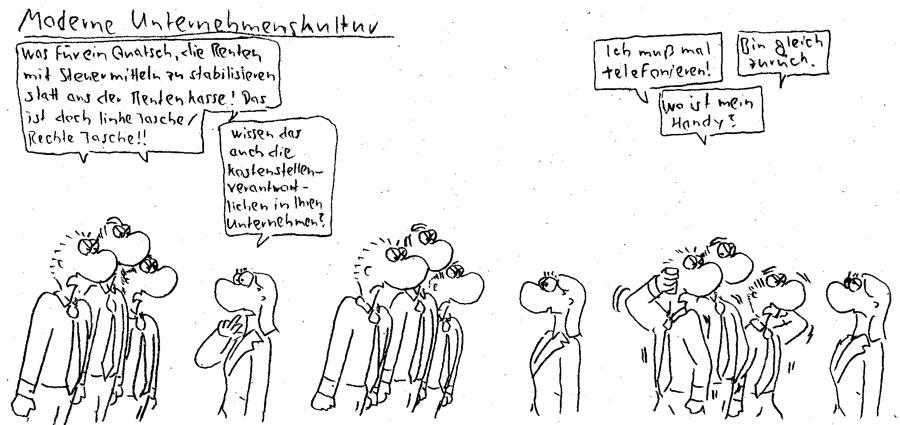 Moderne Unternehmenskultur
Was für ein Quatsch, die Renten
mit Steuermitteln zu stabilisieren
statt aus der Rentenkasse! Das
ist doch linke Tasche/
Rechte Tasche!!
wissen das
auch die
kostenstellen-
verantwort-
lichen in Ihren
Unternehmen?
Ich muß mal
telefonieren!
Bin gleich
zurück.
Wo ist mein
Handy?